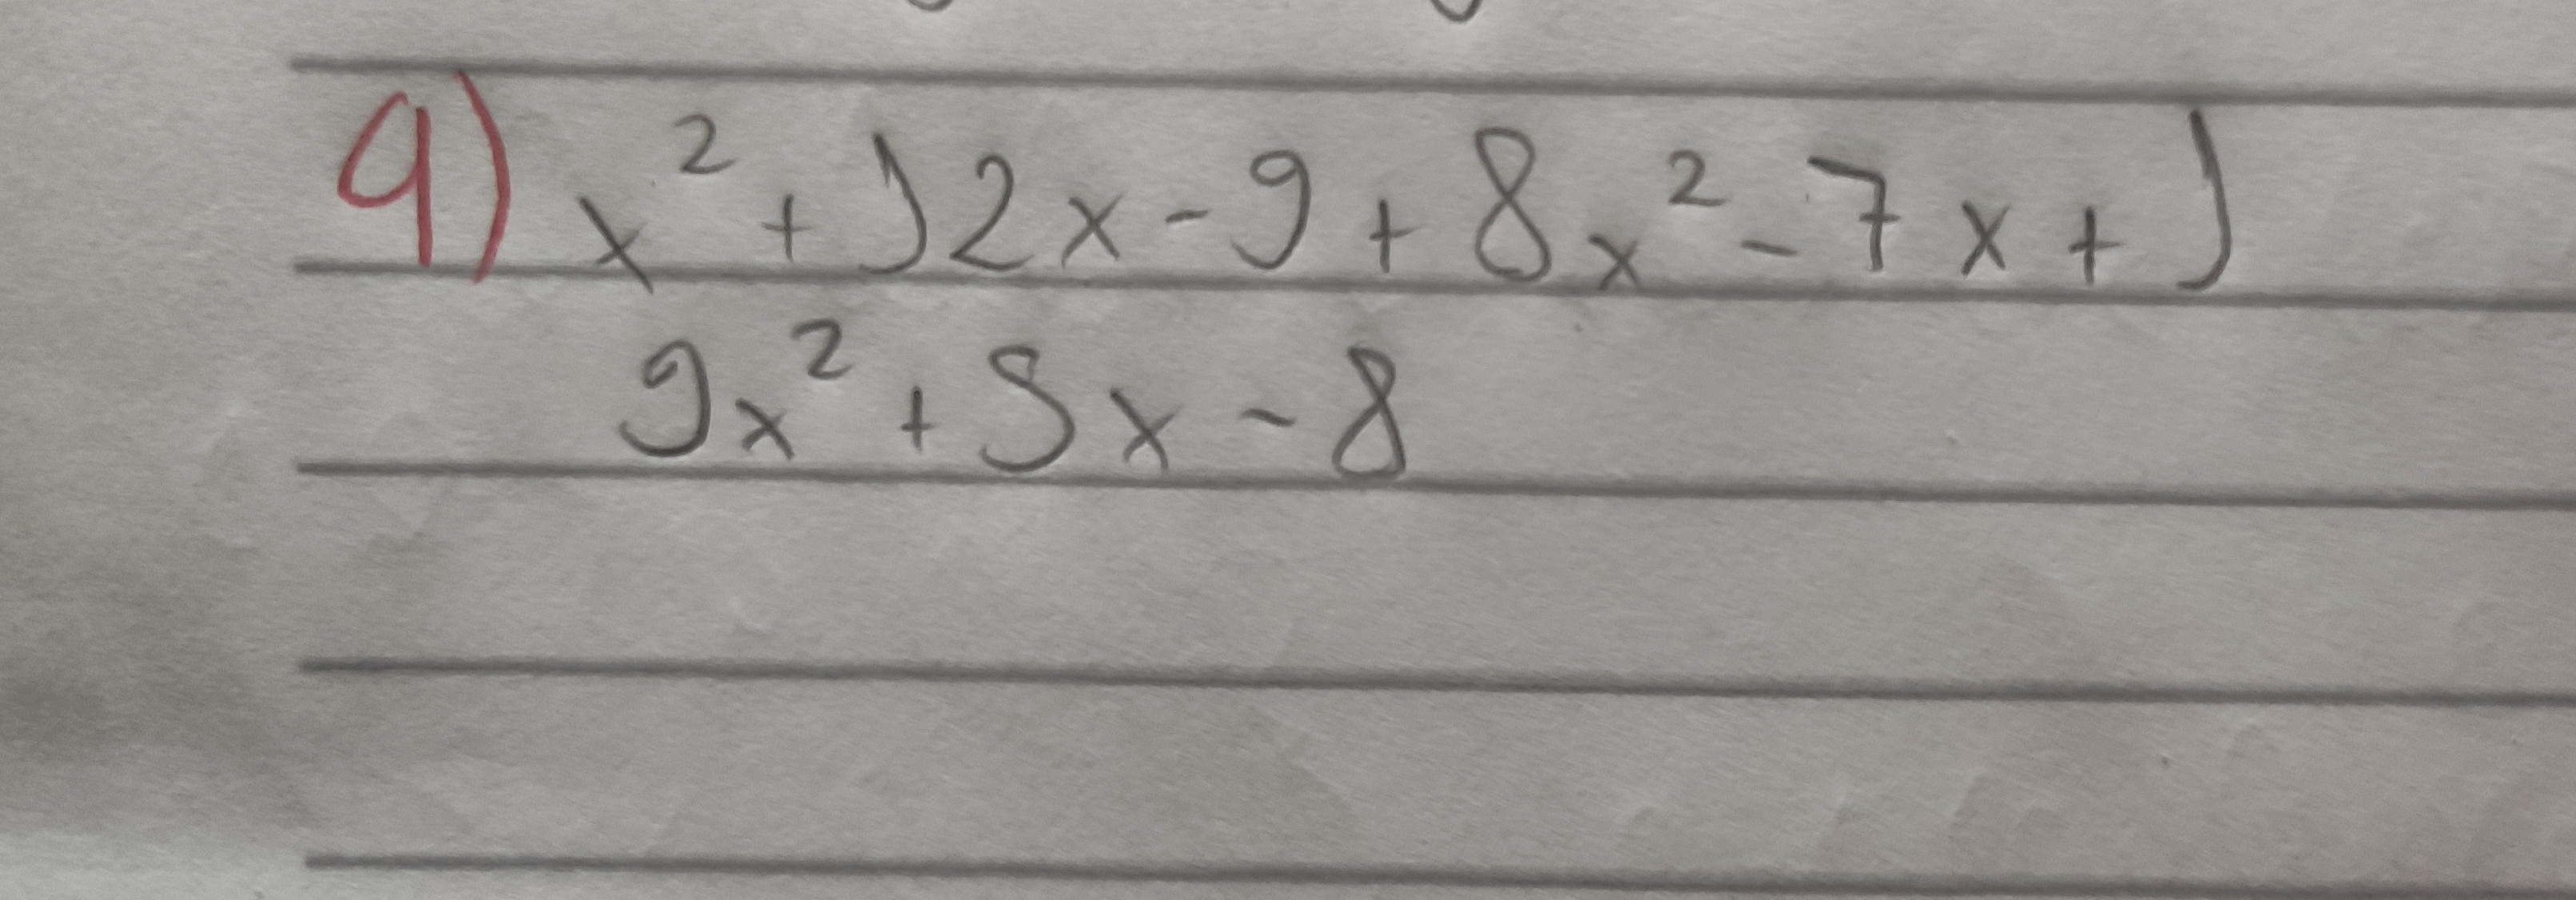 9) x² + 12x - 9 + 8x² - 7x + 1
9x² + 5x - 8